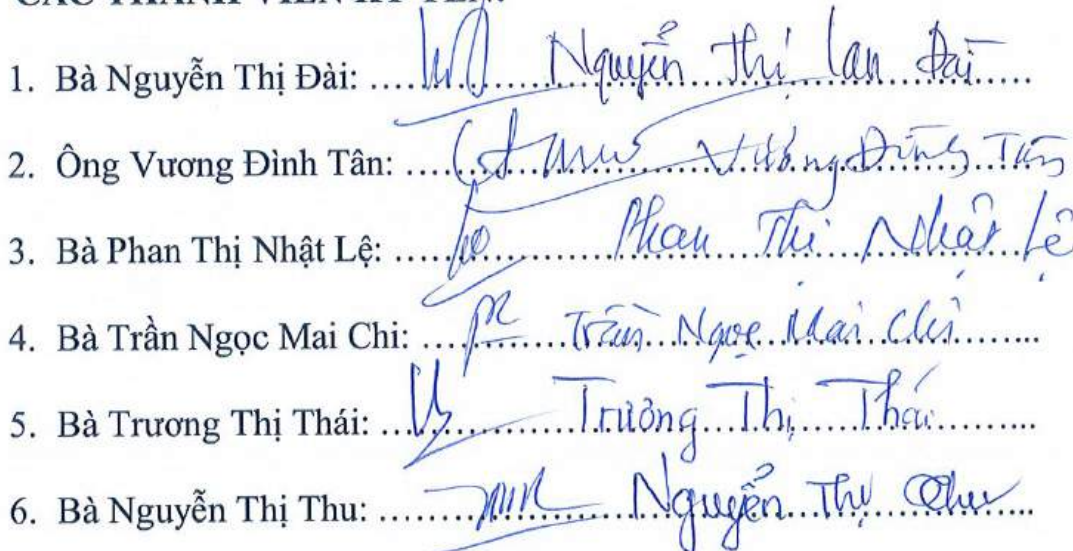 CÁC THÀNH VIÊN KÝ TÊN:
1. Bà Nguyễn Thị Đài: Nguyễn Thị Lan Đài
2. Ông Vương Đình Tân: Vương Đình Tân
3. Bà Phan Thị Nhật Lệ: Phan Thị Nhật Lệ
4. Bà Trần Ngọc Mai Chi: Trần Ngọc Mai Chi
5. Bà Trương Thị Thái: Trương Thị Thái
6. Bà Nguyễn Thị Thu: Nguyễn Thị Thu